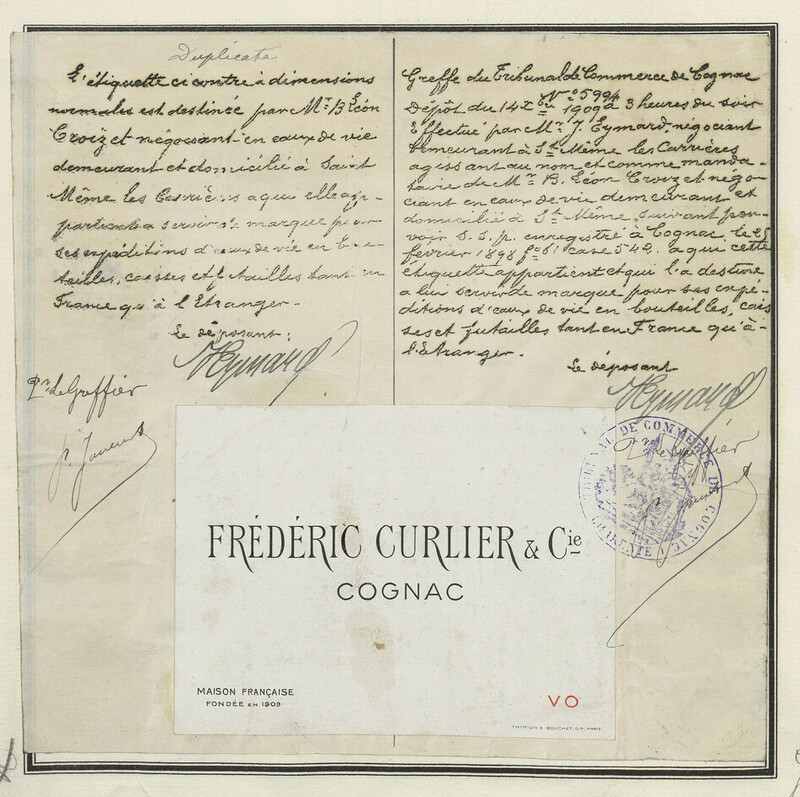 Duplicata
L'étiquette ci contre à dimensions
normales est destinée par Mr. B Léon
Croizet négociant en eaux de vie
demeurant et domicilié à Saint
Même les Carrières a qui elle ap-
partient a servir de marque pour
ses expéditions d'eaux de vie en bou-
teilles, caisses et futailles tant en
France qu'à l'Etranger.
Le déposant:
J Eymard
Pr. Le Greffier
Greffe du Tribunal de Commerce de Cognac
No 5994
Dépôt du 14 Xbre 1909 à 3 heures du soir
Effectué par Mr. J. Eymard, négociant
demeurant à St. Même les Carrières
agissant au nom et comme manda-
taire de Mr. B. Léon Croizet négo-
ciant en eaux de vie demeurant et
domicilié à St. Même suivant pou-
voir s. s. p. enregistré à Cognac le 25
février 1898 fo 61 case 542. a qui cette
étiquette appartient et qui l'a destine
a lui servir de marque pour ses expé-
ditions d'eaux de vie en bouteilles, cais
ses et futailles tant en France qu'à-
l'Etranger.
Le déposant
J Eymard
Pr. Le Greffier
TRIBUNAL DE COMMERCE DE COGNAC
CHARENTE
FRÉDÉRIC CURLIER & Cie
COGNAC
MAISON FRANÇAISE
FONDÉE EN 1909
VO
THIRION & BOUCHET, DIP. PARIS